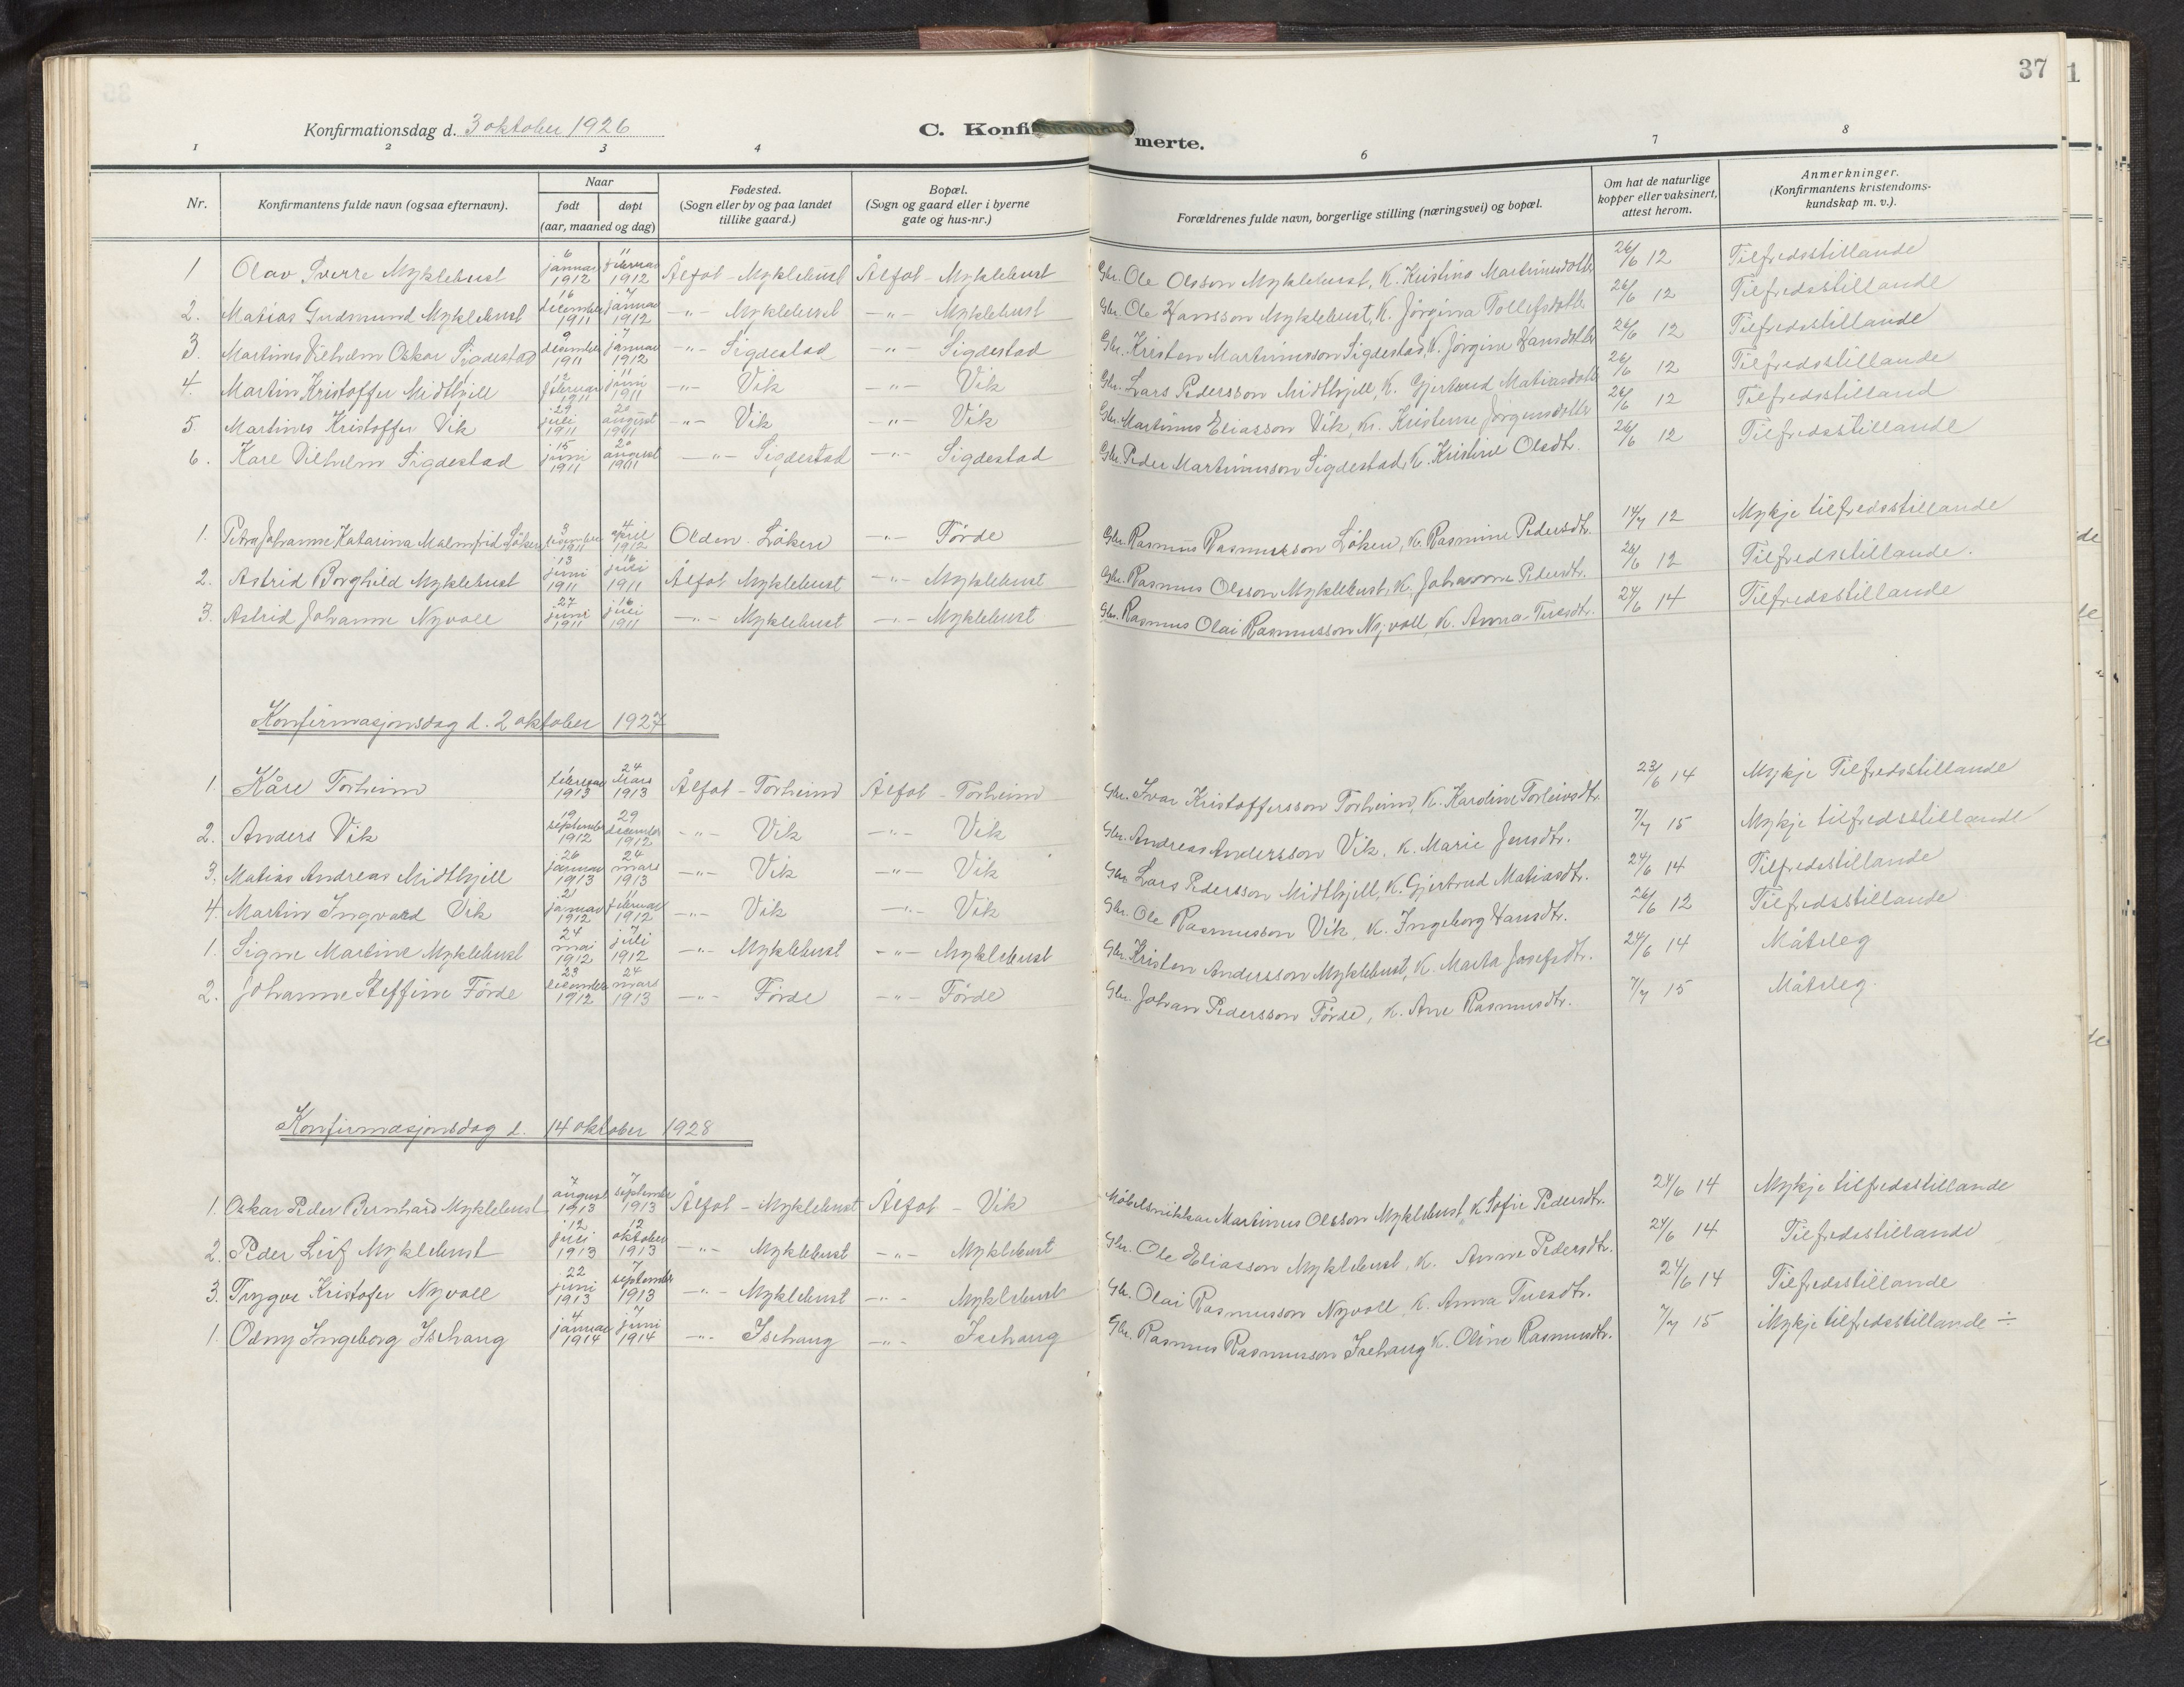 37
1
Konfirmationsdag d. 3 oktober 1926
C. Konfi merte.
1 2 3 4 6 7 8
Nr. Konfirmantens fulde navn (ogsaa efternavn). Naar født døpt (aar, maaned og dag) Fødested. (Sogn eller by og paa landet tillike gaard.) Bopæl. (Sogn og gaard eller i byerne gate og hus-nr.) Forældrenes fulde navn, borgerlige stilling (næringsvei) og bopæl. Om hat de naturlige kopper eller vaksinert, attest herom. Anmerkninger. (Konfirmantens kristendoms-kundskap m. v.).
1 Olav Sverre Myklebust 6 januar 1912 11 februar 1912 Ålfot - Myklebust Ålfot - Myklebust Gbr. Ole Olsson Myklebust, K. Kristina Martinusdotter 26/6 12 Tilfredsstillande
2. Matias Gudmund Myklebust 16 december 1911 7 januar 1912 -"- Myklebust -"- Myklebust Gbr. Ole Hansson Myklebust, K. Jørgina Tollefsdotter 26/6 12 Tilfredsstillande
3. Martinus Vilhelm Oskar Sigdestad 9 desember 1911 7 januar 1912 -"- Sigdestad -"- Sigdestad Gbr. Kristen Martinusson Sigdestad, K. Jørgine Hansdotter 26/6 12 Tilfredsstillande
4. Martin Kristoffer Midthjell 12 februar 1911 11 juni 1911 -"- Vik -"- Vik Gbr. Lars Pedersson Midthjell, K. Gjertrud Matiasdotter 26/6 12 Tilfredsstillande
5. Martinus Kristoffer Vik 29 juli 1911 20 august 1911 -"- Vik -"- Vik Gbr. Martinus Eliasson Vik, K. Kristense Jørgensdotter 26/6 12 Tilfredsstilland
6. Kare Vilhelm Sigdestad 15 juni 1911 20 august 1911 -"- Sigdestad -"- Sigdestad Gbr. Peder Martinusson Sigdestad, K. Kristine Olsdtr. 26/6 12 Tilfredsstillande
1. Petra Johanne Katarina Malmfrid Löken 3 desember 1911 4 april 1912 Olden - Löken -"- Förde Gbr. Rasmus Rasmusson Löken, K. Rasmine Pedersdtr. 14/7 12 Mykje tilfredsstillande
2. Astrid Borghild Myklebust 13 juni 1911 16 juli 1911 Ålfot Myklebust -"- Myklebust Gbr. Rasmus Olsson Myklebust, K. Johanne Pedersdtr. 26/6 12 Tilfredsstillande.
3. Astrid Johanne Nyvoll 27 juni 1911 16 juli 1911 -"- Myklebust -"- Myklebust Gbr. Rasmus Olai Rasmusson Nyvoll, K. Anna Turesdtr. 24/6 14 Tilfredsstillande
Konfirmasjonsdag d. 2 oktober 1927
1. Kåre Torheim 1 februar 1913 24 mars 1913 Ålfot - Torheim Ålfot - Torheim Gbr. Ivar Kristoffersson Torheim, K. Karoline Torleivsdtr. 23/6 14 Mykje Tilfredsstillande
2. Anders Vik 19 september 1912 29 december 1912 -"- Vik -"- Vik Gbr. Andreas Andersson Vik, K. Marie Jensdtr. 7/7 15 Mykje tilfredsstillande
3. Matias Andreas Midthjell 26 januar 1913 24 mars 1913 -"- Vik -"- Vik Gbr. Lars Pedersson Midthjell, K. Gjertrud Matiasdtr. 24/6 14 Tilfredsstillande
4. Martin Ingvard Vik 21 januar 1912 11 februar 1912 -"- Vik -"- Vik Gbr. Ole Rasmusson Vik, K. Ingeborg Hansdtr. 26/6 12 Tilfredsstillande
1. Signe Martine Myklebust 24 mai 1912 7 juli 1912 -"- Myklebust -"- Myklebust Gbr. Kristen Andersson Myklebust, K. Marta Josefsdtr. 24/6 14 Måteleg
2. Johanne Steffine Förde 23 december 1912 24 mars 1913 -"- Förde -"- Förde Gbr. Johan Pedersson Förde, K. Ane Rasmusdtr. 7/7 15 Måteleg.
Konfirmasjonsdag d. 14 oktober 1928
1. Oskar Peder Bernhard Myklebust 7 august 1913 7 september 1913 Ålfot - Myklebust Ålfot - Vik Möbelsnikkar Martinus Olsson Myklebust K. Sofie Pedersdtr. 24/6 14 Mykje tilfredsstillande
2. Peder Leif Myklebust 12 juli 1913 12 oktober 1913 -"- Myklebust -"- Myklebust Gbr. Ole Eliasson Myklebust, K. Anne Pedersdtr. 24/6 14 Tilfredsstillande
3. Trygve Kristofer Nyvoll 22 juni 1913 7 september 1913 -"- Myklebust -"- Myklebust Gbr. Olai Rasmusson Nyvoll, K. Anna Turesdtr. 24/6 14 Tilfredsstillande
1. Odny Ingeborg Isehaug 4 januar 1914 7 juni 1914 -"- Isehaug -"- Isehaug Gbr. Rasmus Rasmusson Isehaug K. Oline Rasmusdtr. 7/7 15 Mykje tilfredsstillande ÷